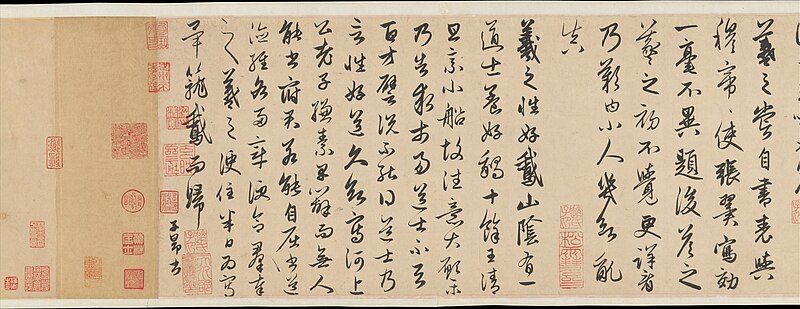 羲之嘗自書表與
穆帝〻使張翼寫効
一毫不異題後答之
羲之初不覺更詳看
乃歎曰小人幾欲亂
真
羲之性好鵞山陰有一
道士養好鵝十餘王清
旦乗小船故往意大願樂
乃告求市易道士不與
百方譬説不能得道士乃
言性好道久欲寫河上
公老子縑素早辦而無人
能書府君若能自屈書道
德經各兩章便合羣奉
之羲之便住半日為寫
畢籠鵞而歸
子昂書